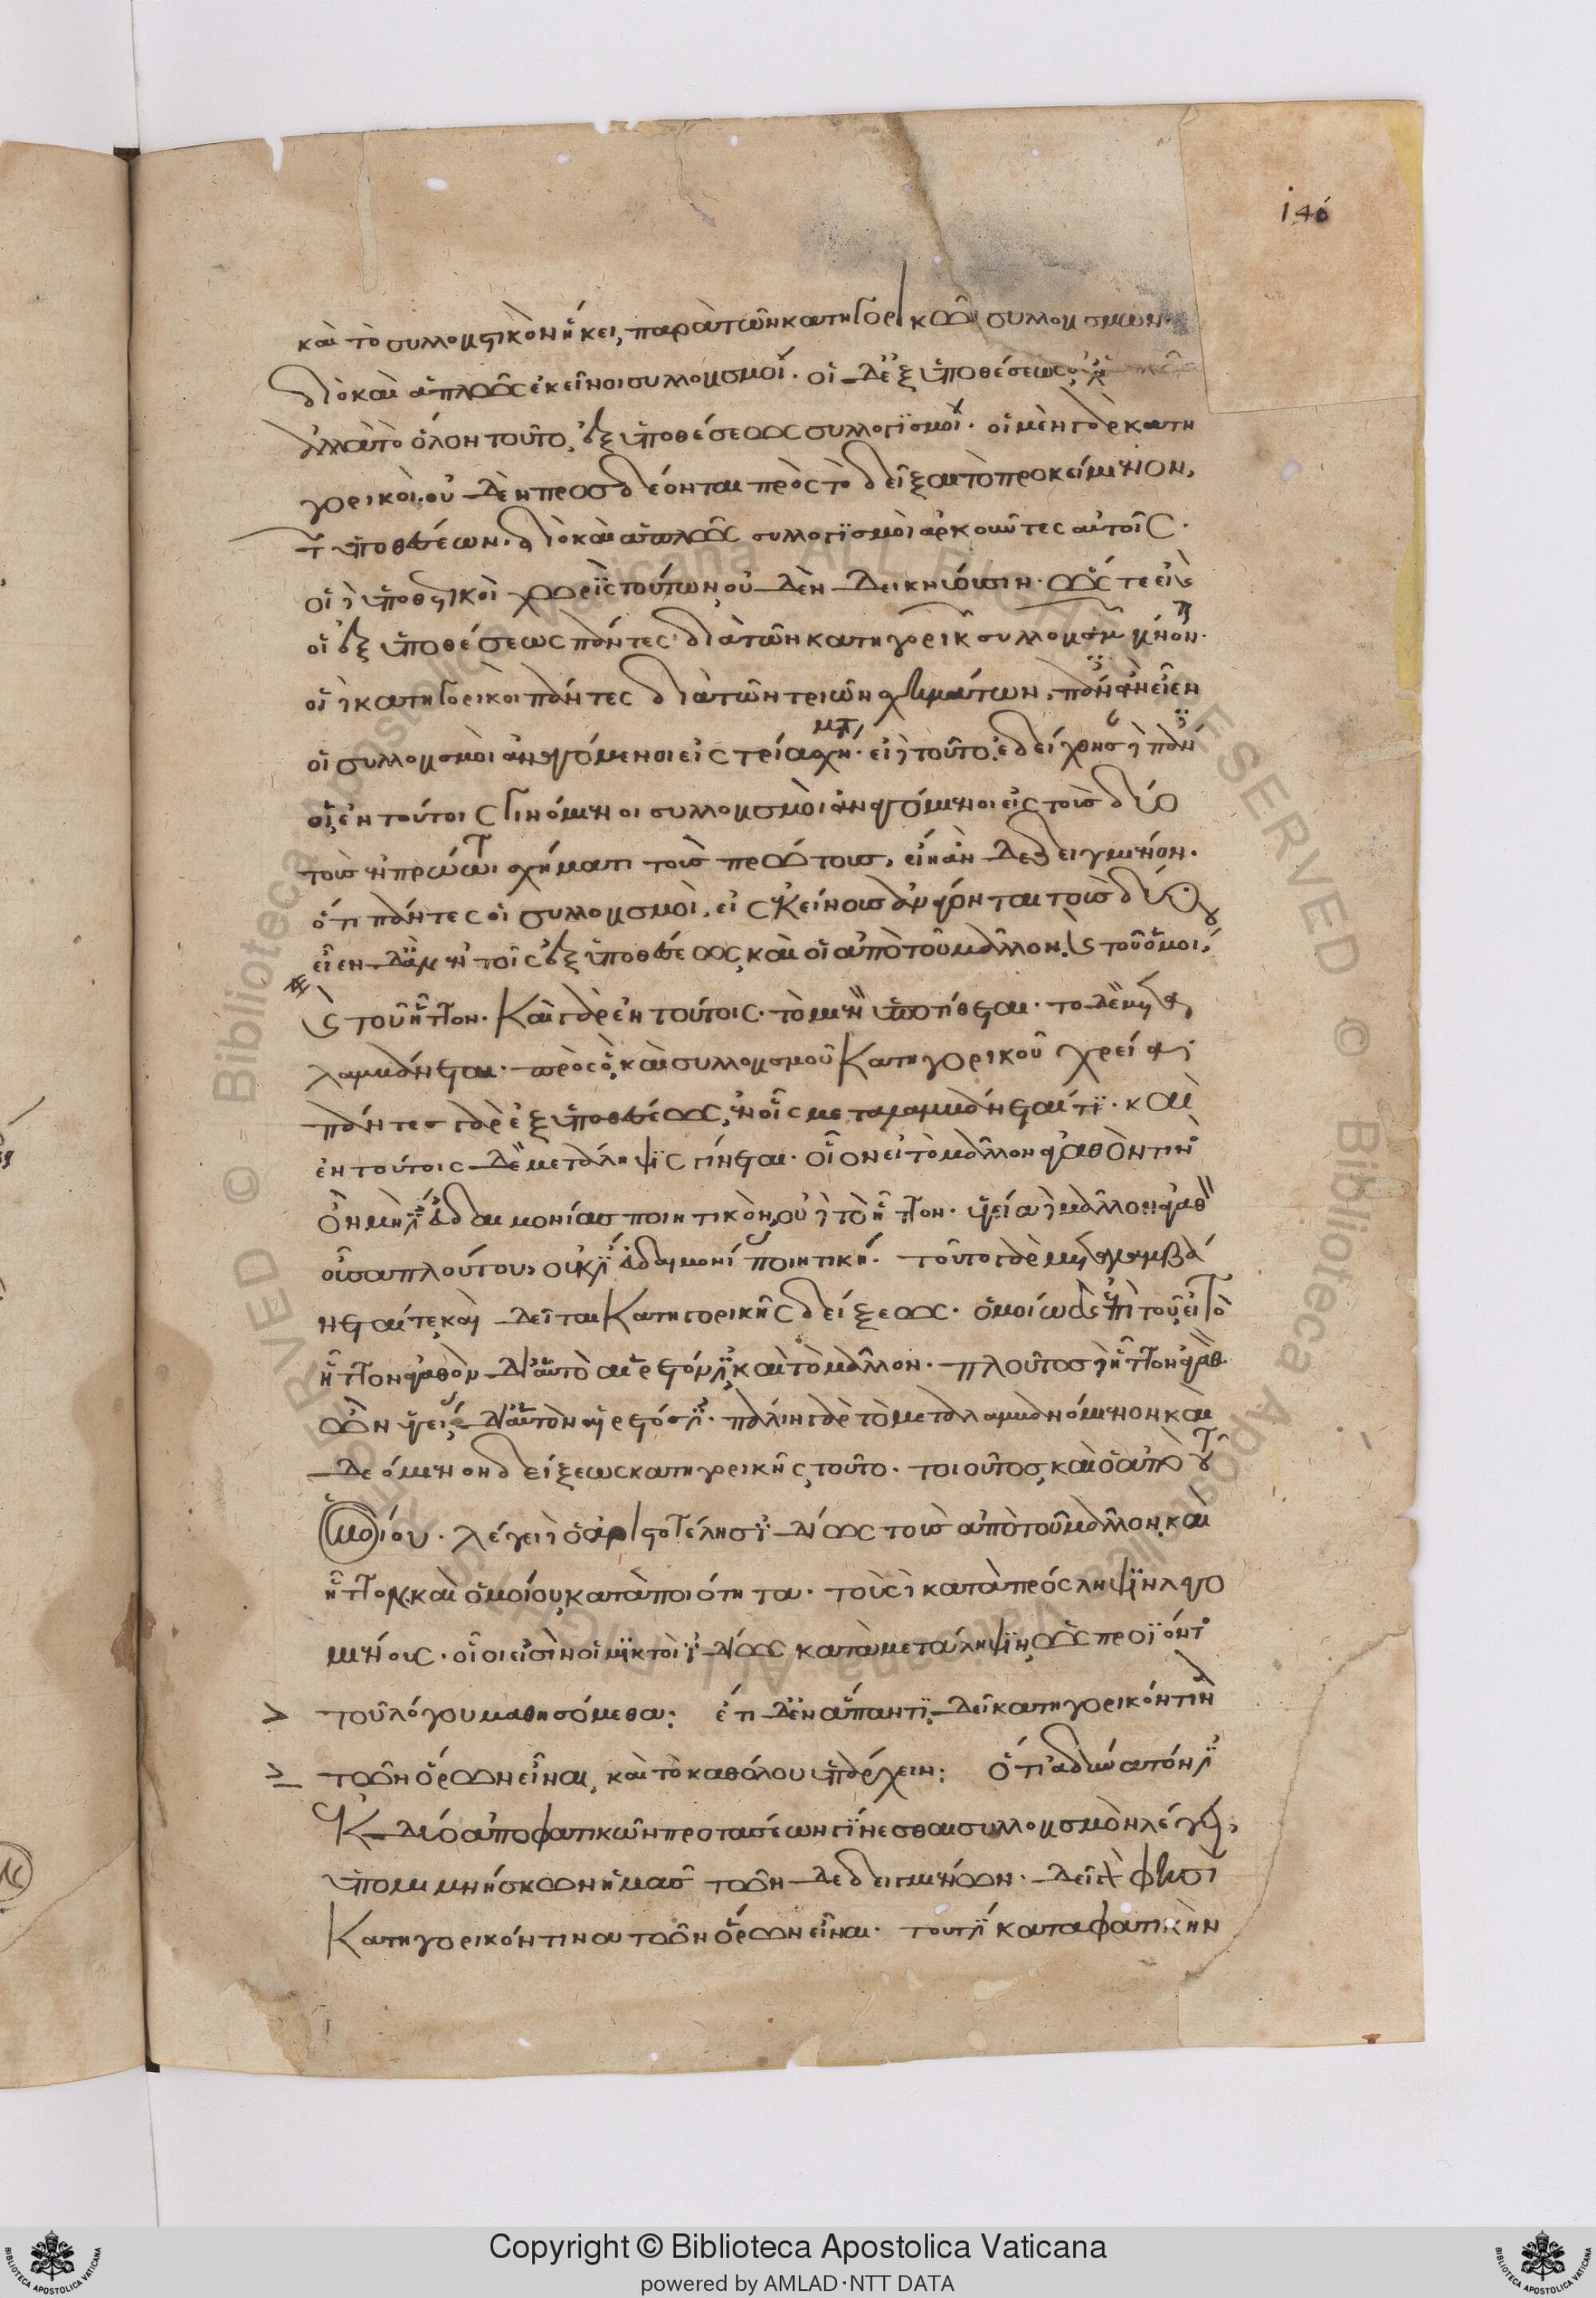 140
καὶ τὸ συλλογιστικὸν ἥκει, παρὰ τῶν κατηγορικῶν συλλογισμῶν·
διὸ καὶ ἁπλῶς ἐκεῖνοι συλλογισμοί. οἱ δὲ ἐξ ὑποθέσεως οὐχ
ἀλλὰ τὸ ὅλον τοῦτο, ἐξ ὑποθέσεως συλλογισμοί. οἱ μὲν γὰρ κατη
γορικοὶ. οὐδὲν προσδέονται πρὸς τὸ δεῖξαι τὸ προκείμενον,
τῶν ὑποθέσεων. διὸ καὶ ἁπλῶς συλλογισμοὶ ἀρκοῦντες αὑτοῖς.
οἱ δὲ ὑποθετικοὶ χωρὶς τούτων, οὐδὲν δεικνύουσιν. ὥστε εἰ
οἱ ἐξ ὑποθέσεως πάντες διὰ τῶν κατηγορικῶν συλλογισμῶν
οἱ δὲ κατηγορικοὶ πάντες διὰ τῶν τριῶν σχημάτων, πάντες ἂν εἶεν
οἱ συλλογισμοὶ ἀναγόμενοι εἰς τρία σχήματα. εἰ δὲ τοῦτο. ἐδείχθησαν δὲ πάντες
οἱ ἐν τούτοις γινόμενοι συλλογισμοὶ ἀναγόμενοι εἰς τοὺς δύο
τοὺς ἐν πρώτωι σχήματι τοὺς πρώτους, εἴη ἂν δεδειγμένον.
ὅτι πάντες οἱ συλλογισμοὶ, εἰς ἐκείνους ἀνάγονται τοὺς δύο
εἶεν δ' ἂν ἐν τοῖς ἐξ ὑποθέσεως, καὶ οἱ ἀπὸ τοῦ μᾶλλον. καὶ τοῦ ὁμοίου
καὶ τοῦ ἧττον. καὶ γὰρ ἐν τούτοις. τὸ μὲν ὑποτίθεται. τὸ δὲ μετα
λαμβάνεται. πρὸς ὃ, καὶ συλλογισμοῦ κατηγορικοῦ χρεία.
πάντες γὰρ ἐξ ὑποθέσεως, ἐν οἷς μεταλαμβάνεταί τι. καὶ
ἐν τούτοις δὲ μετάληψις γίνεται. οἷον εἰ τὸ μᾶλλον ἀγαθόν τινος
ὂν μή ἐστιν εὐδαιμονίας ποιητικὸν, οὐδὲ τὸ ἧττον. ὑγίεια δὲ μᾶλλον ἀγαθὸν
οὖσα πλούτου, οὐκ ἔστιν εὐδαιμονίας ποιητική. τοῦτο γὰρ μεταλαμβά
νεταί τε, καὶ δεῖται κατηγορικῆς δείξεως. ὁμοίως δὲ ἐπὶ τοῦ, εἰ τὸ
ἧττον ἀγαθὸν δι' αὑτὸ αἱρετόν ἐστι, καὶ τὸ μᾶλλον. πλοῦτος δὲ ἧττον ἀγαθὸν
ὢν ὑγιείας, δι' αὑτὸν αἱρετός ἐστι. πάλιν γὰρ τὸ μεταλαμβανόμενον καὶ
δεόμενον δείξεως κατηγορικῆς, τοῦτο. τοιοῦτος, καὶ ὁ ἀπὸ τοῦ
ὁμοίου. λέγει δὲ ὁ ἀριστοτέλης ἰδίως τοὺς ἀπὸ τοῦ μᾶλλον, καὶ
ἧττον, καὶ ὁμοίου, κατὰ ποιότητα. τοὺς δὲ κατὰ πρόσληψιν λεγο
μένους. οἷοί εἰσιν οἱ μικτοὶ ἰδίως κατὰ μετάληψιν, ὡς προϊόντος
τοῦ λόγου μαθησόμεθα: ἔτι δὲ ἐν ἅπαντι, δεῖ κατηγορικόν τινα
τῶν ὅρων εἶναι, καὶ τὸ καθόλου ὑπάρχειν: ὅτι ἀδύνατόν ἐστιν
ἐκ δύο ἀποφατικῶν προτασέων γίνεσθαι συλλογισμὸν λέγει,
ὑπομιμνήσκων ἡμᾶς τῶν δεδειγμένων. δεῖ γάρ φησι
κατηγορικόν τινα τῶν ὅρων εἶναι. τουτέστι καταφατικὴν